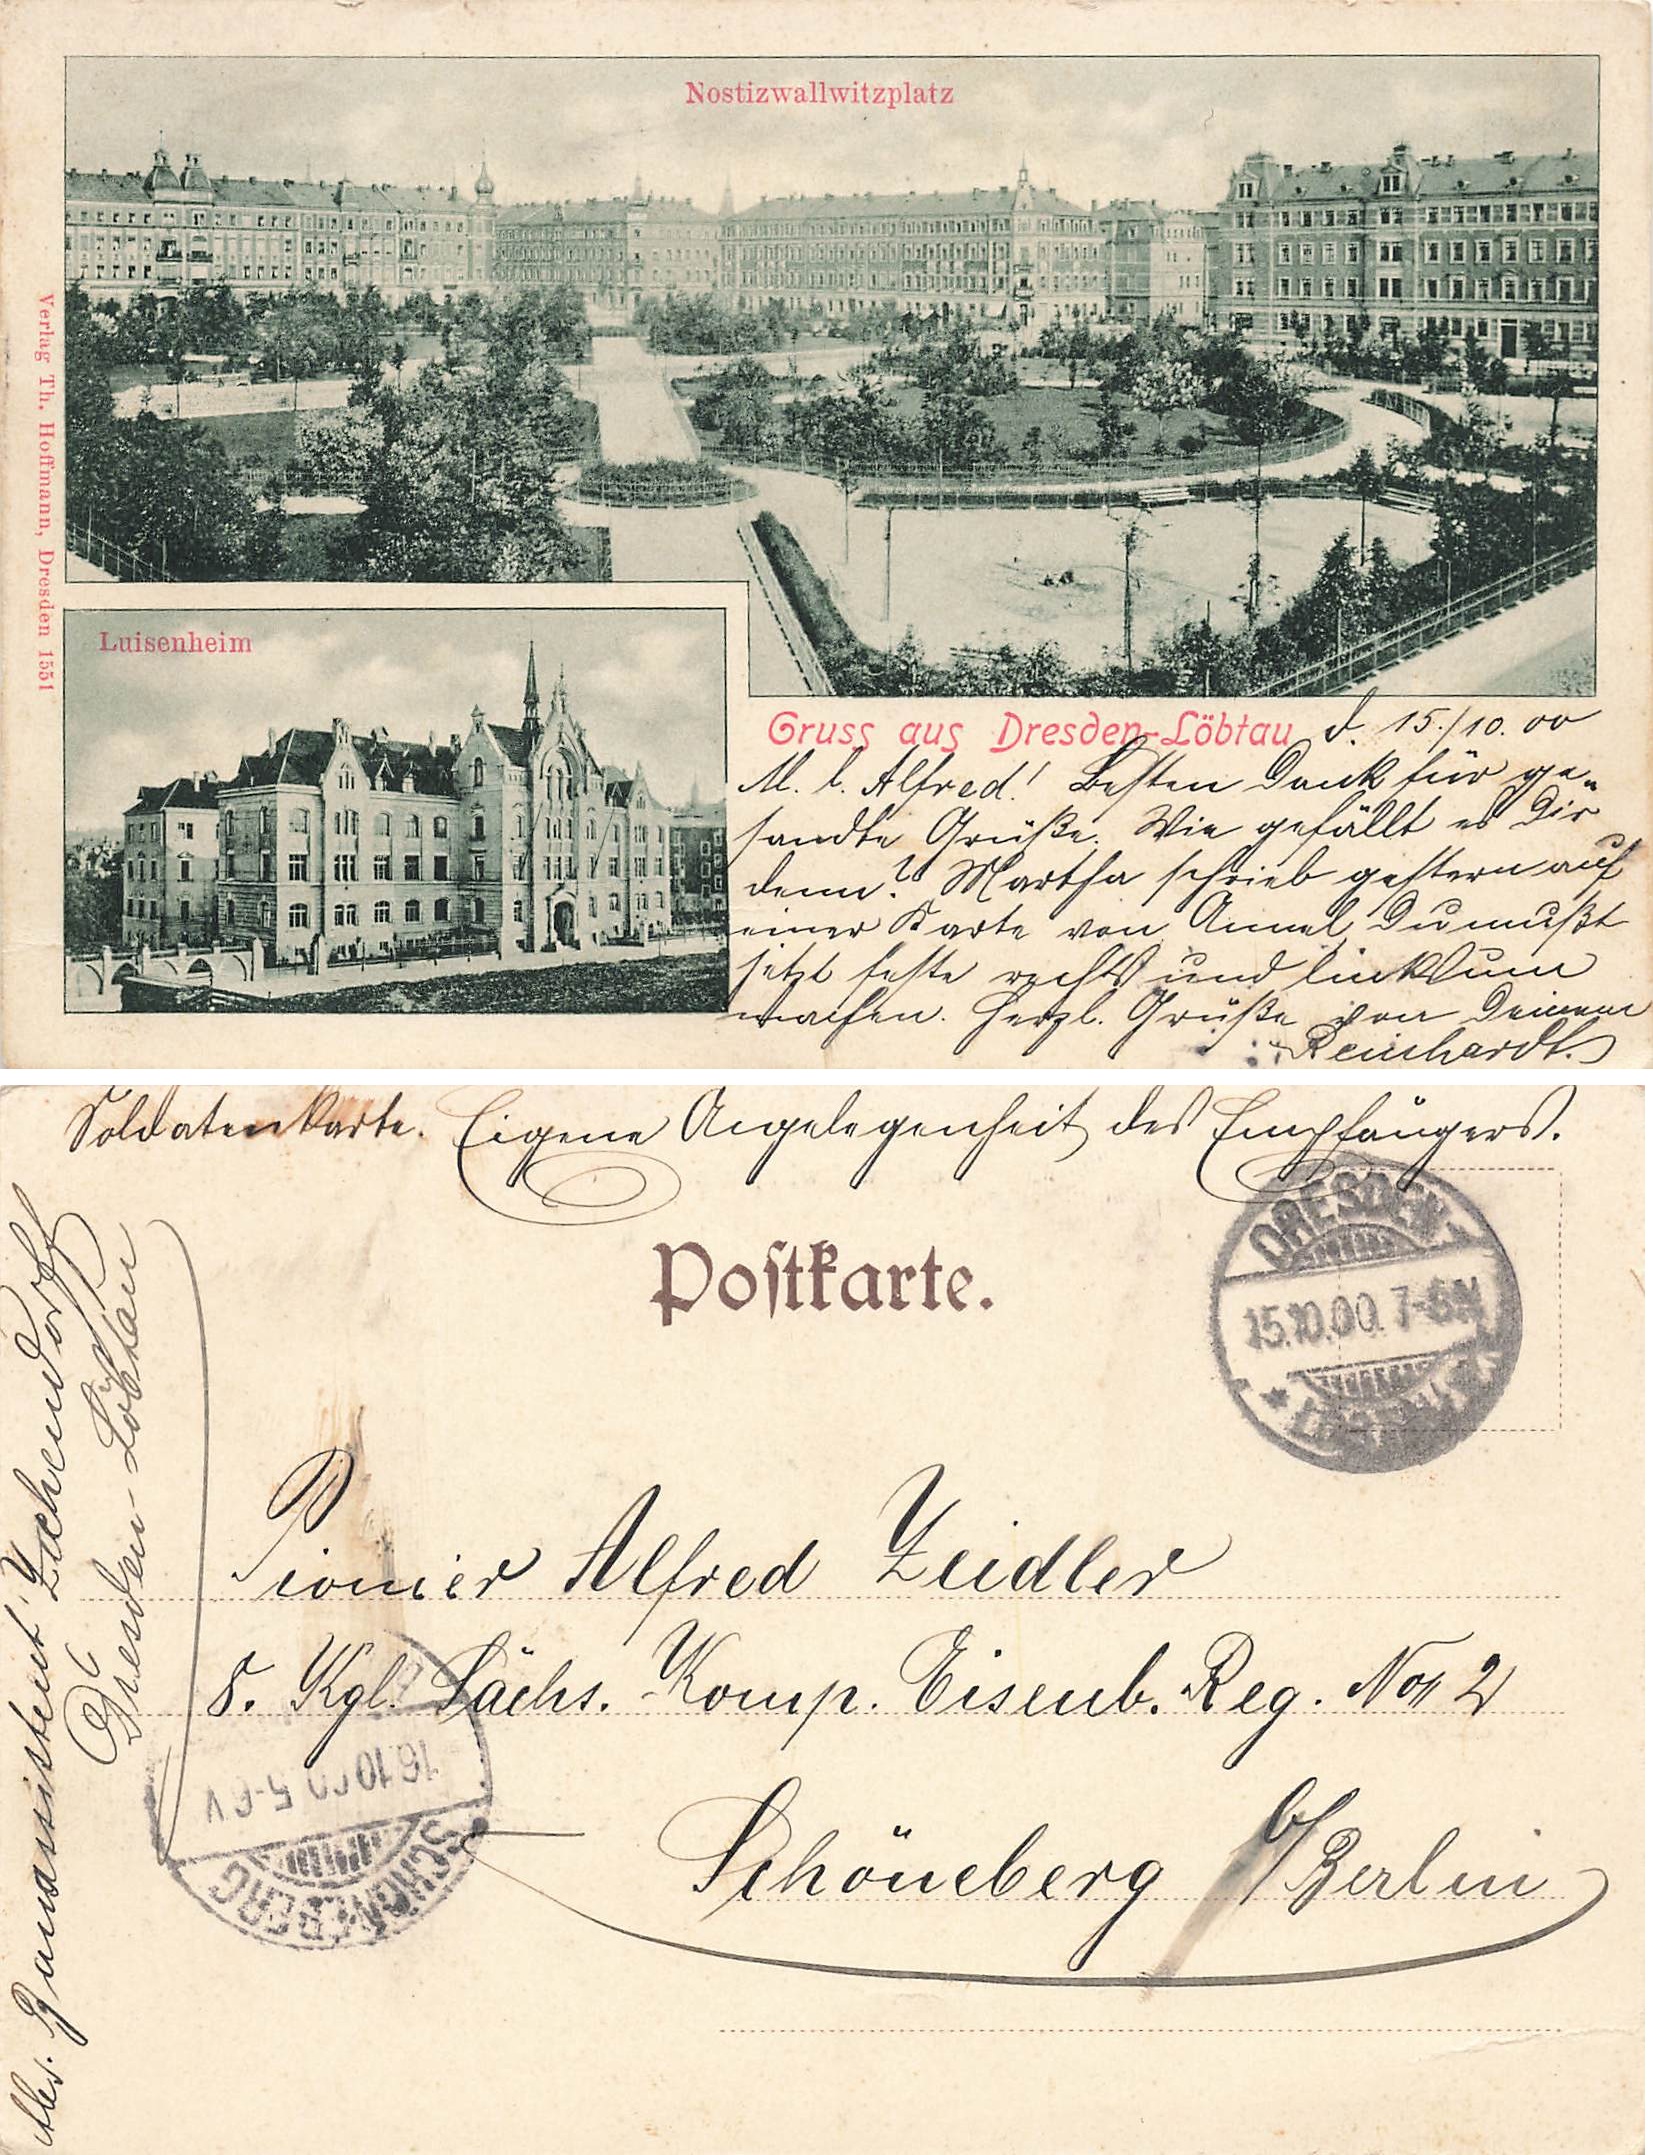 Nostizwallwitzplatz
Verlag Th. Hoffmann, Dresden 1551
Luisenheim
Gruss aus Dresden-Löbtau
d. 15./10. 00
M. l. Alfred! Besten Dank für ge-
sandte Grüße. Wie gefällt es Dir
denn? Martha schrieb gestern auf
einer Karte von Du mußt
jetzt feste rechts und linksum
machen. Herzl. Grüße von Deinem
Reinhardt.
Soldatenkarte. Eigene Angelegenheit des Empfängers.
Postkarte.
DRESDEN
15.10.00. 7-8N
Pionier Alfred Zeidler
8. Kgl. Sächs. Komp. Eisenb. Reg. No 2
Schöneberg b/Berlin
16.10.00 5-6V
SCHÖNEBERG
Abs. Zschendorff
Dresden-Löbtau